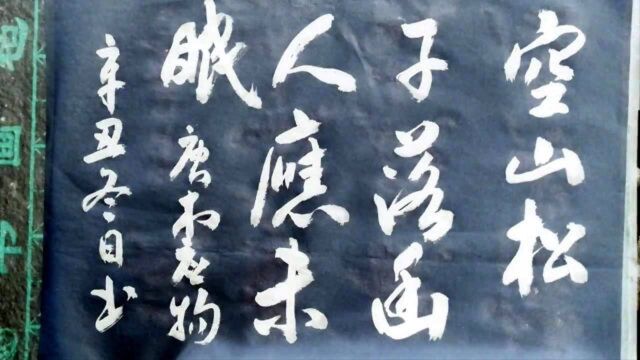 空山松
子落幽
人應未
眠 唐韦应物
辛丑冬日书